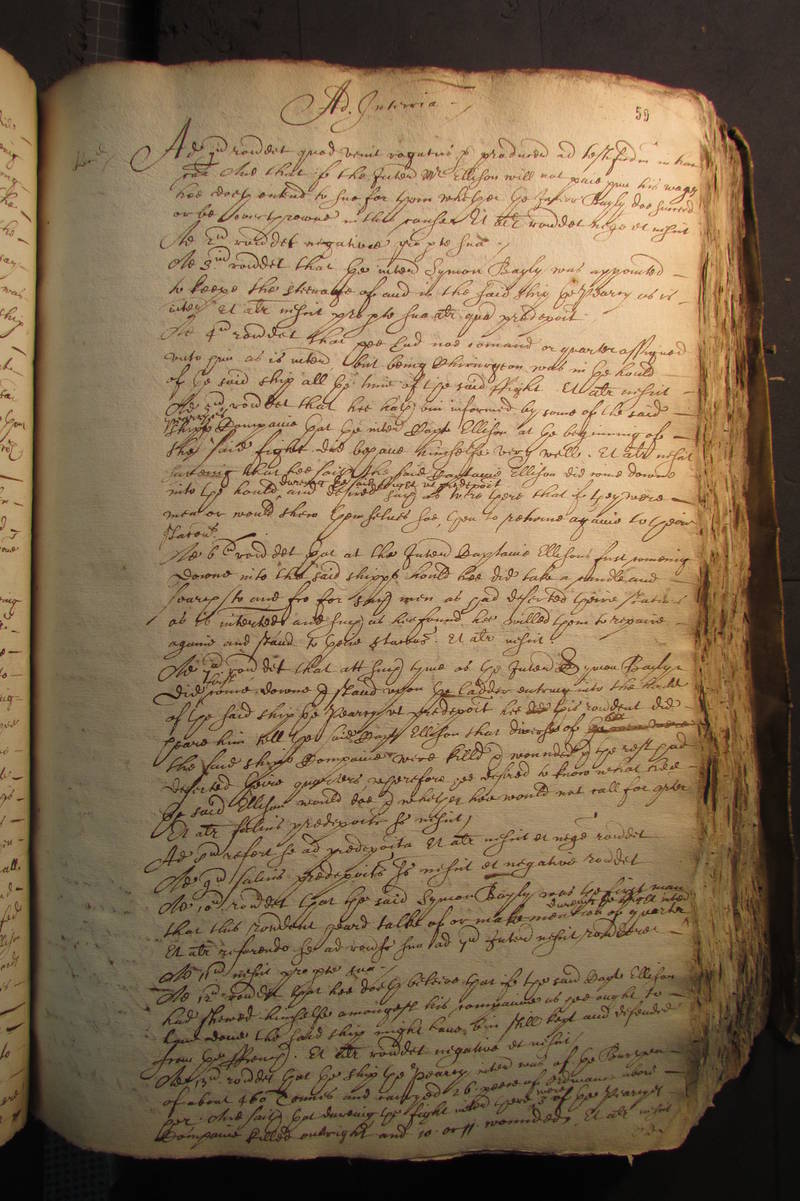 Ad. Interria
59
Ad primum rondet quod venit rogatus et producen ad testificdum in hac
And that if the Interr Mr Ellison will not paie him his wages
hee doeth entend to sue for them whether the Interr Bayly doe succeed
or be overthrowne in this cause Et aliter rondet nego et nescit
Ad 2um rondet negative pro pte sua
Ad 3um rondet that the interr Symon Bayly was appointed
to keepe the steerage of and in the said ship the Pearey as is
interr Et aliter nescit pro pte sua aliter qua predeposit
Ad 4um rondet that hee had noe comand or quarter assigned
unto him as is interr but being Chirurgeon was in the hould
of the said ship all the time of the said ffight Et aliter nescit
Ad 5um rondet that hee hath bin informed by some of the said
shipps Companie that the interr Capt Ellison at the beginning of
the said fight did behave himselfe very well. Et aliter nescit
saveing that hee saith the said Captaine Ellison did come downe
during the said fight ut predeposit
into the hould, and desired such as were there that if they were
men or would shew themselves soe, then to retorne againe to their
stacons
Ad 6um rondet that at the Interr Captaine Ellisons first comeing
downe into the said shipps hould hee did take a candle and
search to and fro for such men as had deserted theire stacons
as is interrted and such as hee found hee willed them to repaire
againe and stand to theire stacons. Et aliter nescit
Ad 7um rondet that att such tyme as the Interr Symon Bayly
did come downe & stand upon the ladder entring into the hould
of the said ship the Pearey ut predeposit hee this rondent did
heare him tell the said Capt Ellison that diverse of
the said ships Companie were killed & wounded & the rest had
deserted theire quarters wherefore hee desired to know what hee
the said Ellison would doe & whether hee would not call for quarter
Et aliter salvis predepoitis suis nescit
Ad 8um refert se ad predeposita Et aliter nescit et nego rondet
Ad 9um salvis predepoitis suis nescit et negative rondet
Ad 10um rondet that the said Symon Bayly was the first man
during the ffight interr
that this rondent heard talke of or make mention of quarter
Et aliter referendo se ad rons suo ad 7um Interr nescit rondere
Ad 11um nescit pro pte sua
Ad 12um rondet that hee doeth beleive that if the said Capt Ellison
had shewed himselfe amongest his companie as hee ought to
have done the said ship might have bin still kept and defended
from the ffrench. Et aliter rondet negative et nescit
Ad 13um rondet that the ship the Pearey interr was of the Burthen
of about 460 Tonnes and carryed 26 peeces of Ordinance
And saith that during the fight interr there were 5 of the Peareys
Companie killed outright and 10 or 11 wounded, Et aliter nescit